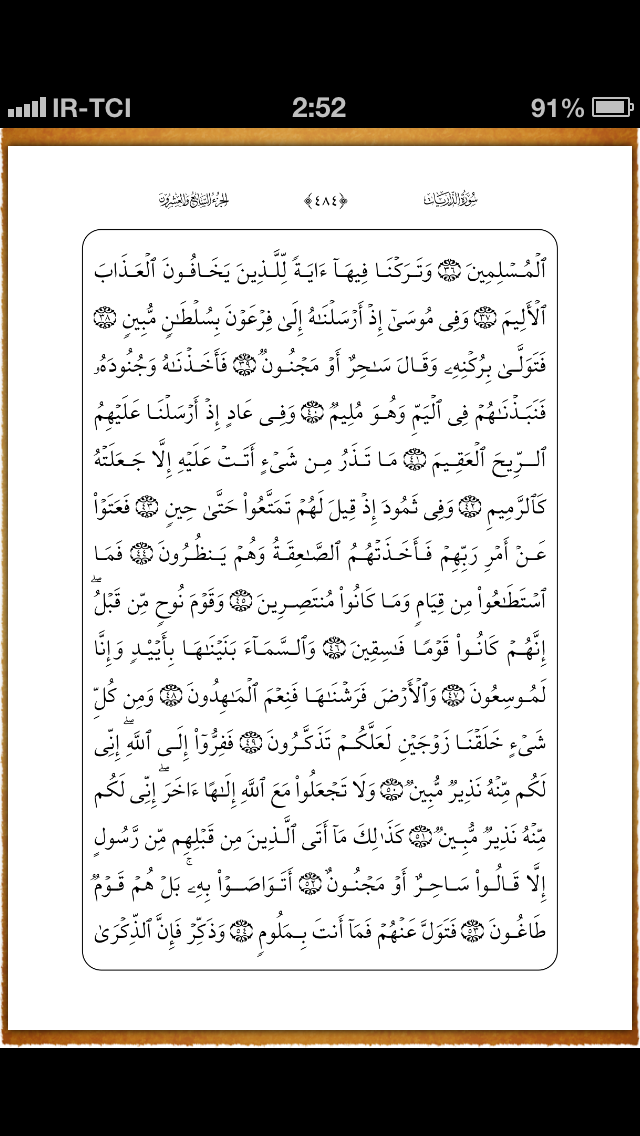 IR-TCI 2:52 91%
سورة الذاريات ﴿٤٨٤﴾ الجزء السابع والعشرون
ٱلۡمُسۡلِمِينَ ٣٦ وَتَرَكۡنَا فِيهَآ ءَايَةٗ لِّلَّذِينَ يَخَافُونَ ٱلۡعَذَابَ
ٱلۡأَلِيمَ ٣٧ وَفِي مُوسَىٰٓ إِذۡ أَرۡسَلۡنَٰهُ إِلَىٰ فِرۡعَوۡنَ بِسُلۡطَٰنٖ مُّبِينٖ ٣٨
فَتَوَلَّىٰ بِرُكۡنِهِۦ وَقَالَ سَٰحِرٌ أَوۡ مَجۡنُونٞ ٣٩ فَأَخَذۡنَٰهُ وَجُنُودَهُۥ
فَنَبَذۡنَٰهُمۡ فِي ٱلۡيَمِّ وَهُوَ مُلِيمٞ ٤٠ وَفِي عَادٍ إِذۡ أَرۡسَلۡنَا عَلَيۡهِمُ
ٱلرِّيحَ ٱلۡعَقِيمَ ٤١ مَا تَذَرُ مِن شَيۡءٍ أَتَتۡ عَلَيۡهِ إِلَّا جَعَلَتۡهُ
كَٱلرَّمِيمِ ٤٢ وَفِي ثَمُودَ إِذۡ قِيلَ لَهُمۡ تَمَتَّعُواْ حَتَّىٰ حِينٖ ٤٣ فَعَتَوۡاْ
عَنۡ أَمۡرِ رَبِّهِمۡ فَأَخَذَتۡهُمُ ٱلصَّٰعِقَةُ وَهُمۡ يَنظُرُونَ ٤٤ فَمَا
ٱسۡتَطَٰعُواْ مِن قِيَامٖ وَمَا كَانُواْ مُنتَصِرِينَ ٤٥ وَقَوۡمَ نُوحٖ مِّن قَبۡلُۖ
إِنَّهُمۡ كَانُواْ قَوۡمٗا فَٰسِقِينَ ٤٦ وَٱلسَّمَآءَ بَنَيۡنَٰهَا بِأَيۡيْدٖ وَإِنَّا
لَمُوسِعُونَ ٤٧ وَٱلۡأَرۡضَ فَرَشۡنَٰهَا فَنِعۡمَ ٱلۡمَٰهِدُونَ ٤٨ وَمِن كُلِّ
شَيۡءٍ خَلَقۡنَا زَوۡجَيۡنِ لَعَلَّكُمۡ تَذَكَّرُونَ ٤٩ فَفِرُّوٓاْ إِلَى ٱللَّهِۖ إِنِّي
لَكُم مِّنۡهُ نَذِيرٞ مُّبِينٞ ٥٠ وَلَا تَجۡعَلُواْ مَعَ ٱللَّهِ إِلَٰهًا ءَاخَرَۖ إِنِّي لَكُم
مِّنۡهُ نَذِيرٞ مُّبِينٞ ٥١ كَذَٰلِكَ مَآ أَتَى ٱلَّذِينَ مِن قَبۡلِهِم مِّن رَّسُولٍ
إِلَّا قَالُواْ سَاحِرٌ أَوۡ مَجۡنُونٌ ٥٢ أَتَوَاصَوۡاْ بِهِۦۚ بَلۡ هُمۡ قَوۡمٞ
طَاغُونَ ٥٣ فَتَوَلَّ عَنۡهُمۡ فَمَآ أَنتَ بِمَلُومٖ ٥٤ وَذَكِّرۡ فَإِنَّ ٱلذِّكۡرَىٰ